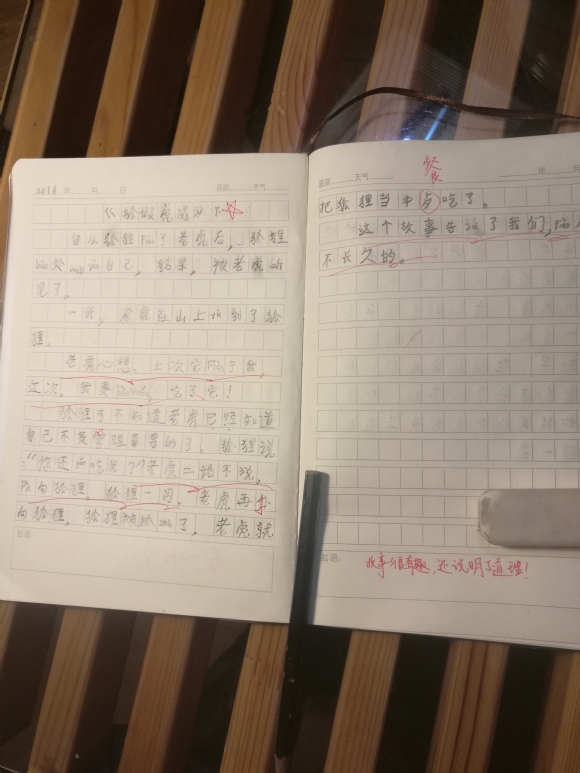 年 月 日 星期 天气
《狐假虎威》下
自从狐狸piàn了老虎后，狐狸
处自己，结果，被老虎听
见了。
一天，老虎在山上到了狐
狸。
老虎心想：上次它piàn了我，
这次，我要吃了它！
狐狸不知道老虎已经知道
自己不是管理百兽的了。狐狸说
：“你还吃我？”老虎二话不说，
向狐狸，狐狸一闪。老虎再扑
向狐狸，狐狸被抓了，老虎就
餐
星期 天气 年 月
把狐狸当中吃了。
这个故事告诉了我们，
不长久的。
故事很有趣，还说明了道理！